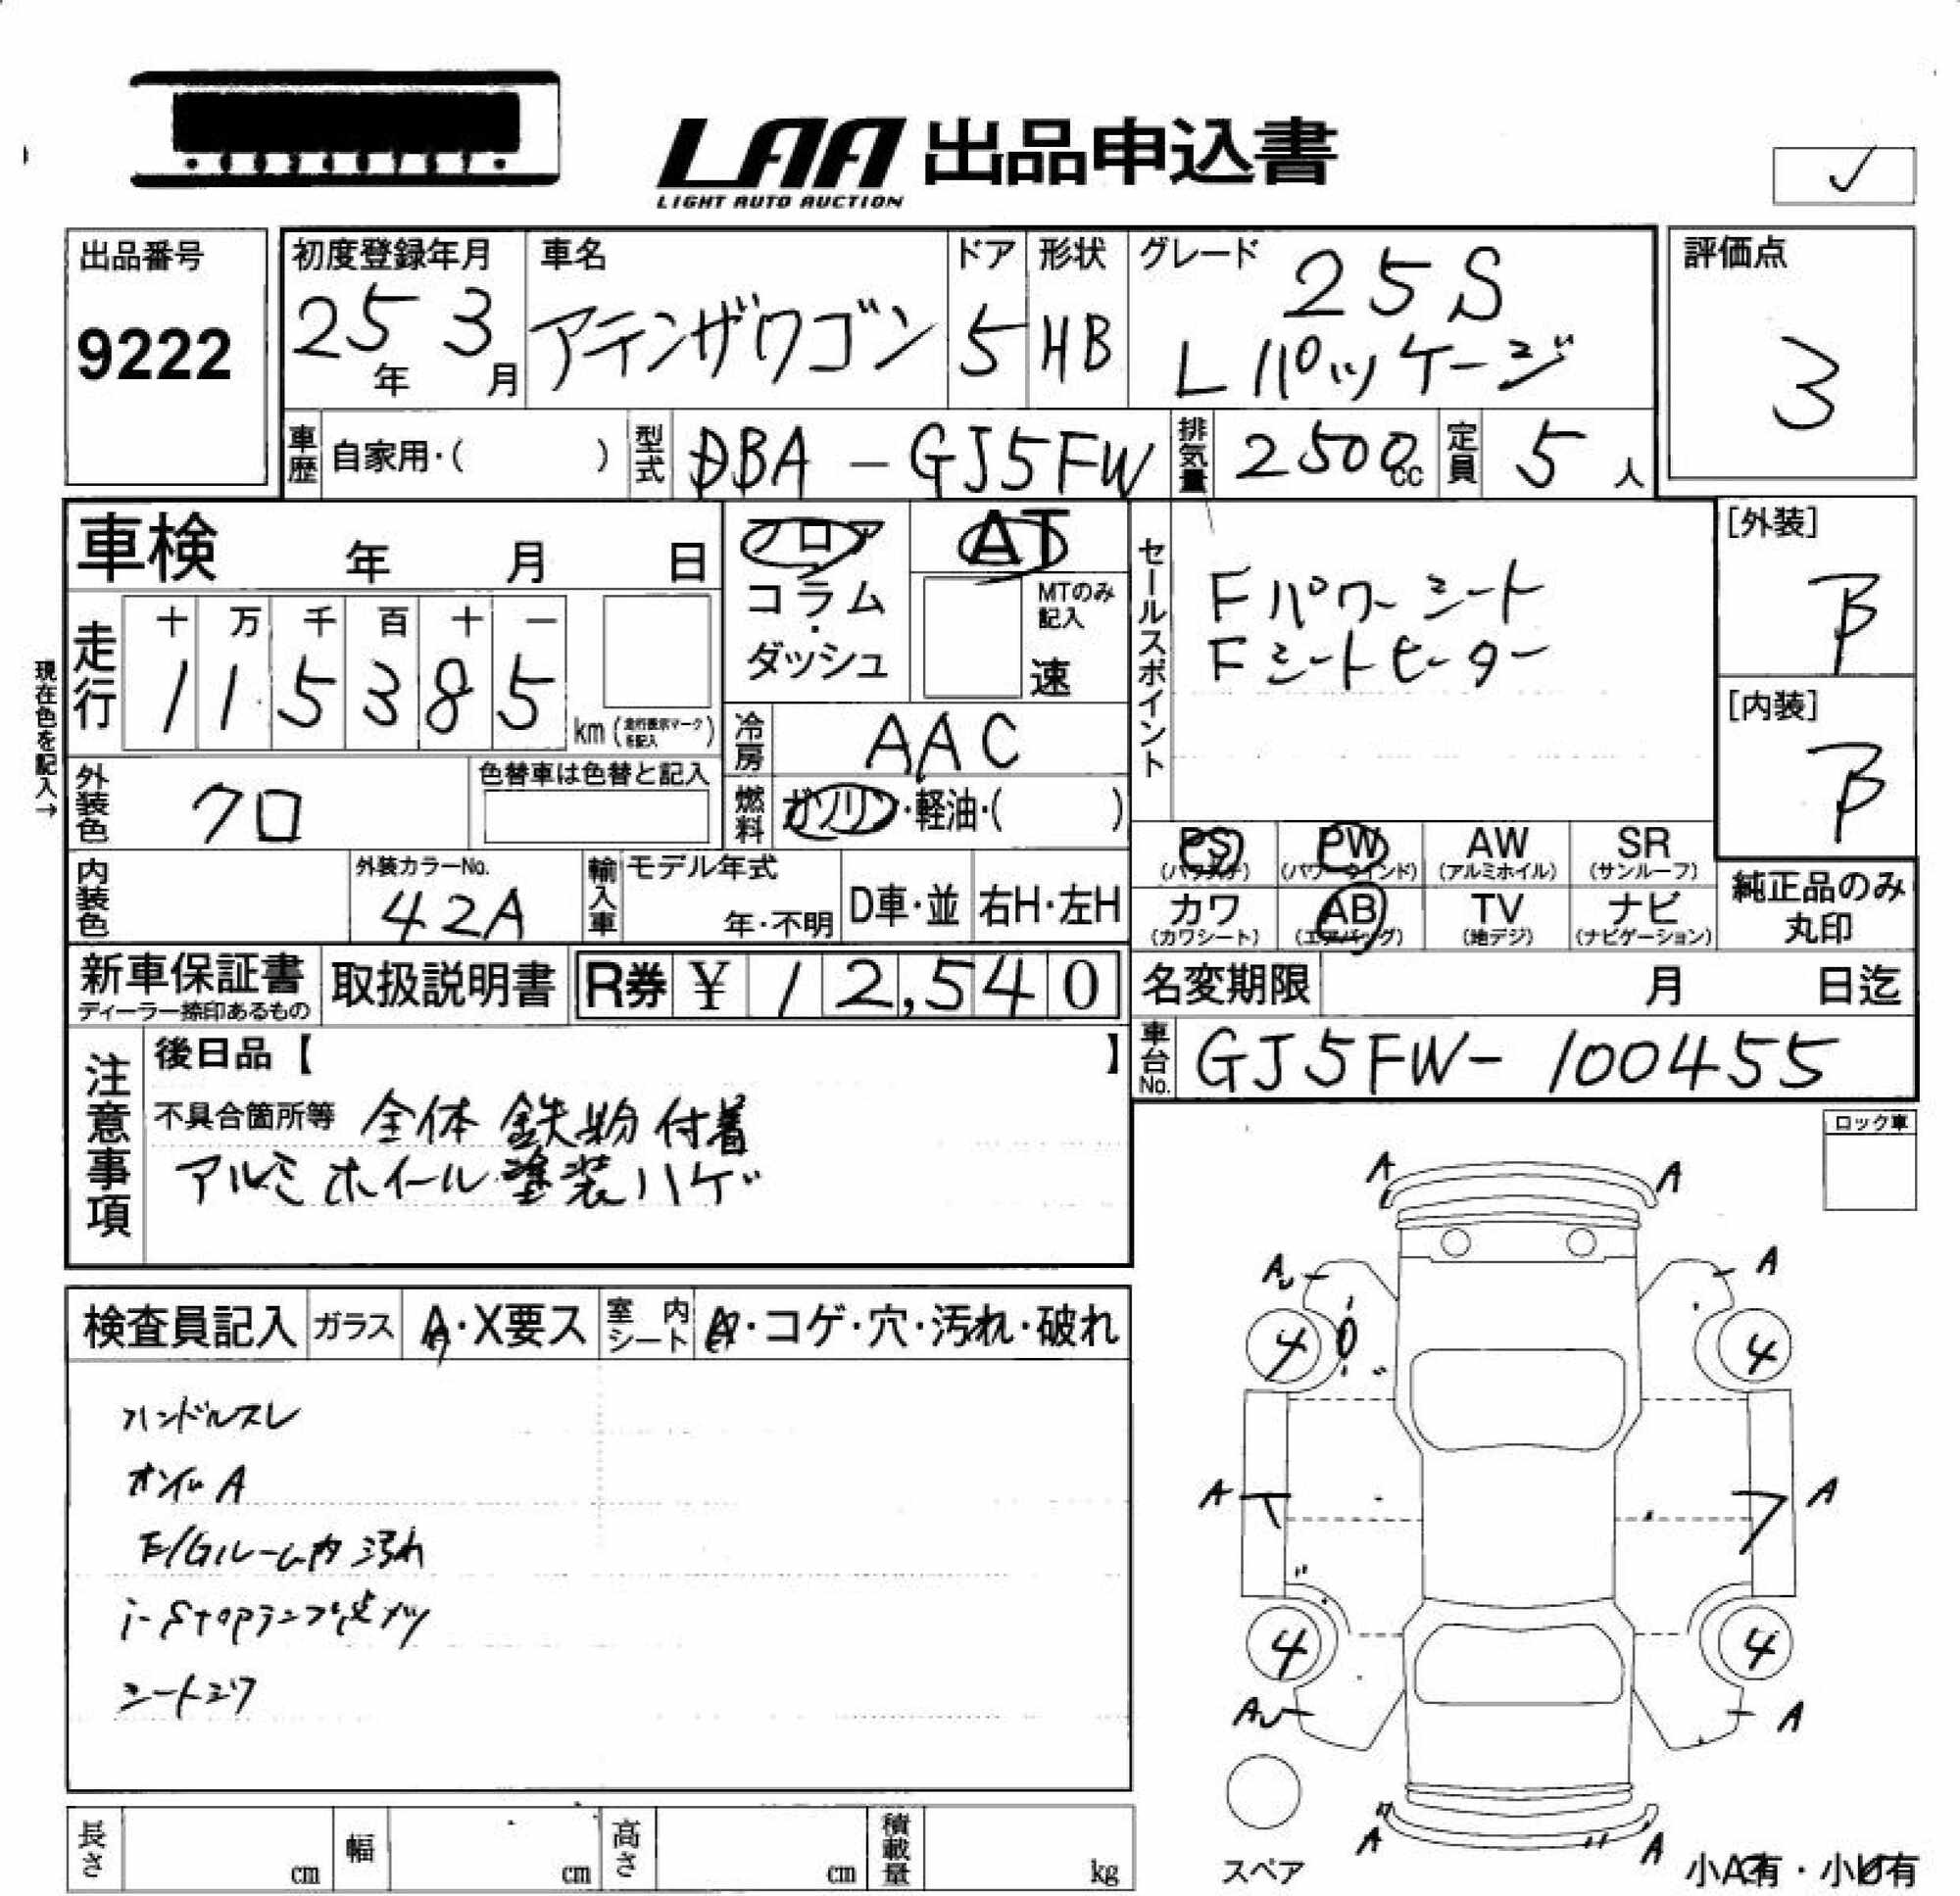 LAA 出品申込書
LIGHT AUTO AUCTION
✓
出品番号
9222
初度登録年月
25年 3月
車名
アテンザワゴン
ドア
5
形状
HB
グレード
25S
Lパッケージ
評価点
3
車歴 自家用・( )
型式 DBA-GJ5FW
排気量 2500cc
定員 5人
車検 年 月 日
フロア
コラム
・
ダッシュ
AT
MTのみ記入
速
セールスポイント
Fパワーシート
Fシートヒーター
[外装]
B
[内装]
B
現在色を記入→
走行
十 万 千 百 十 一
1 1 5 3 8 5
km (走行表示マークを記入)
冷房 AAC
燃料 ガソリン・軽油・( )
外装色 クロ
色替車は色替と記入
PS (パワステ)
PW (パワーウインド)
AW (アルミホイル)
SR (サンルーフ)
カワ (カワシート)
AB (エアバッグ)
TV (地デジ)
ナビ (ナビゲーション)
純正品のみ丸印
内装色
外装カラーNo.
42A
輸入車
モデル年式
年・不明
D車・並
右H・左H
新車保証書
ディーラー捺印あるもの
取扱説明書
R券 ¥ 12,540
名変期限 月 日迄
車台No. GJ5FW-100455
注意事項
後日品【 】
不具合箇所等 全体 鉄粉付着
アルミホイール塗装ハゲ
ロック車
検査員記入
ガラス A・X要ス
室内シート
・コゲ・穴・汚れ・破れ
ハンドルスレ
A
E/Gルーム内汚れ
i-stopランプ点メツ
シートシワ
A A
A A
4 4
A A
4 4
A A
A A
スペア
小A有・小U有
長さ cm
幅 cm
高さ cm
積載量 kg